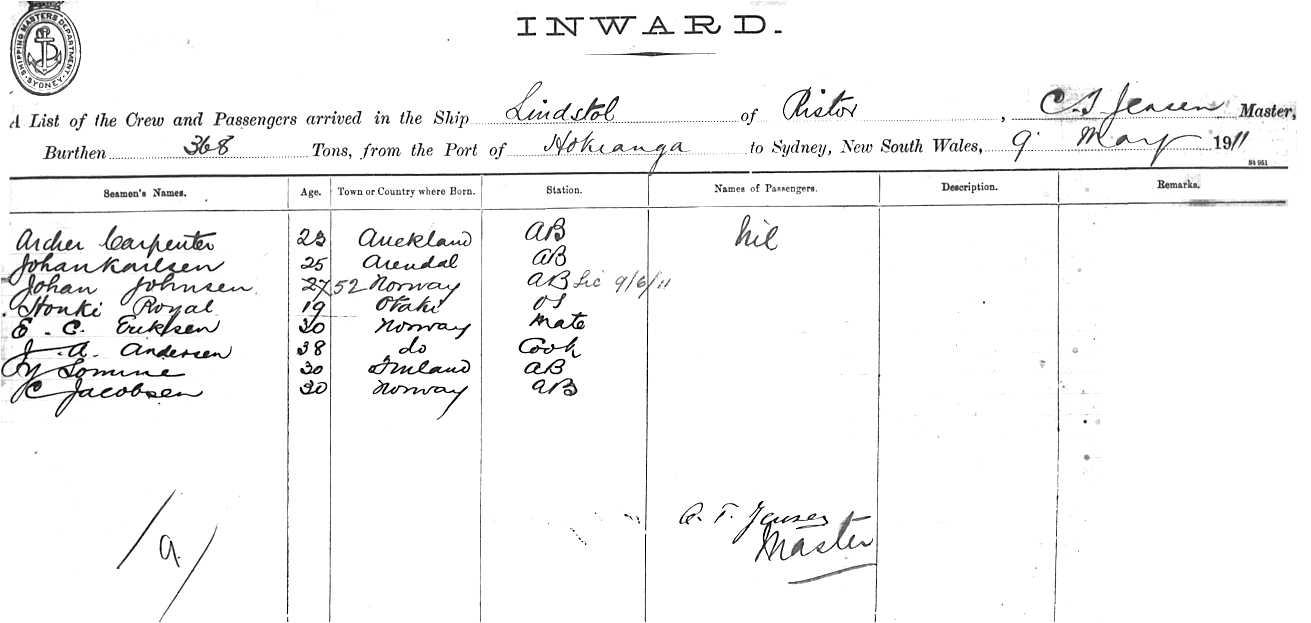 SHIPPING MASTERS DEPARTMENT
SYDNEY
INWARD.
A List of the Crew and Passengers arrived in the Ship Lindstol of Ristor, C. T. Jensen Master,
Burthen 368 Tons, from the Port of Hokianga to Sydney, New South Wales, 9 May 1911
Seamen's Names. Age. Town or Country where Born. Station. Names of Passengers. Description. Remarks.
Archer Carpenter 23 Auckland AB Nil
Johan Karlsen 25 Arendal AB
Johan Johnsen 27 52 Norway AB Lic 9/6/11
Honki Royal 19 Otaki OS
E. C. Eriksen 30 Norway Mate
J. A. Andersen 38 do Cook
30 Finland AB
C Jacobsen 30 Norway AB
T. Jensen
Master
/a/